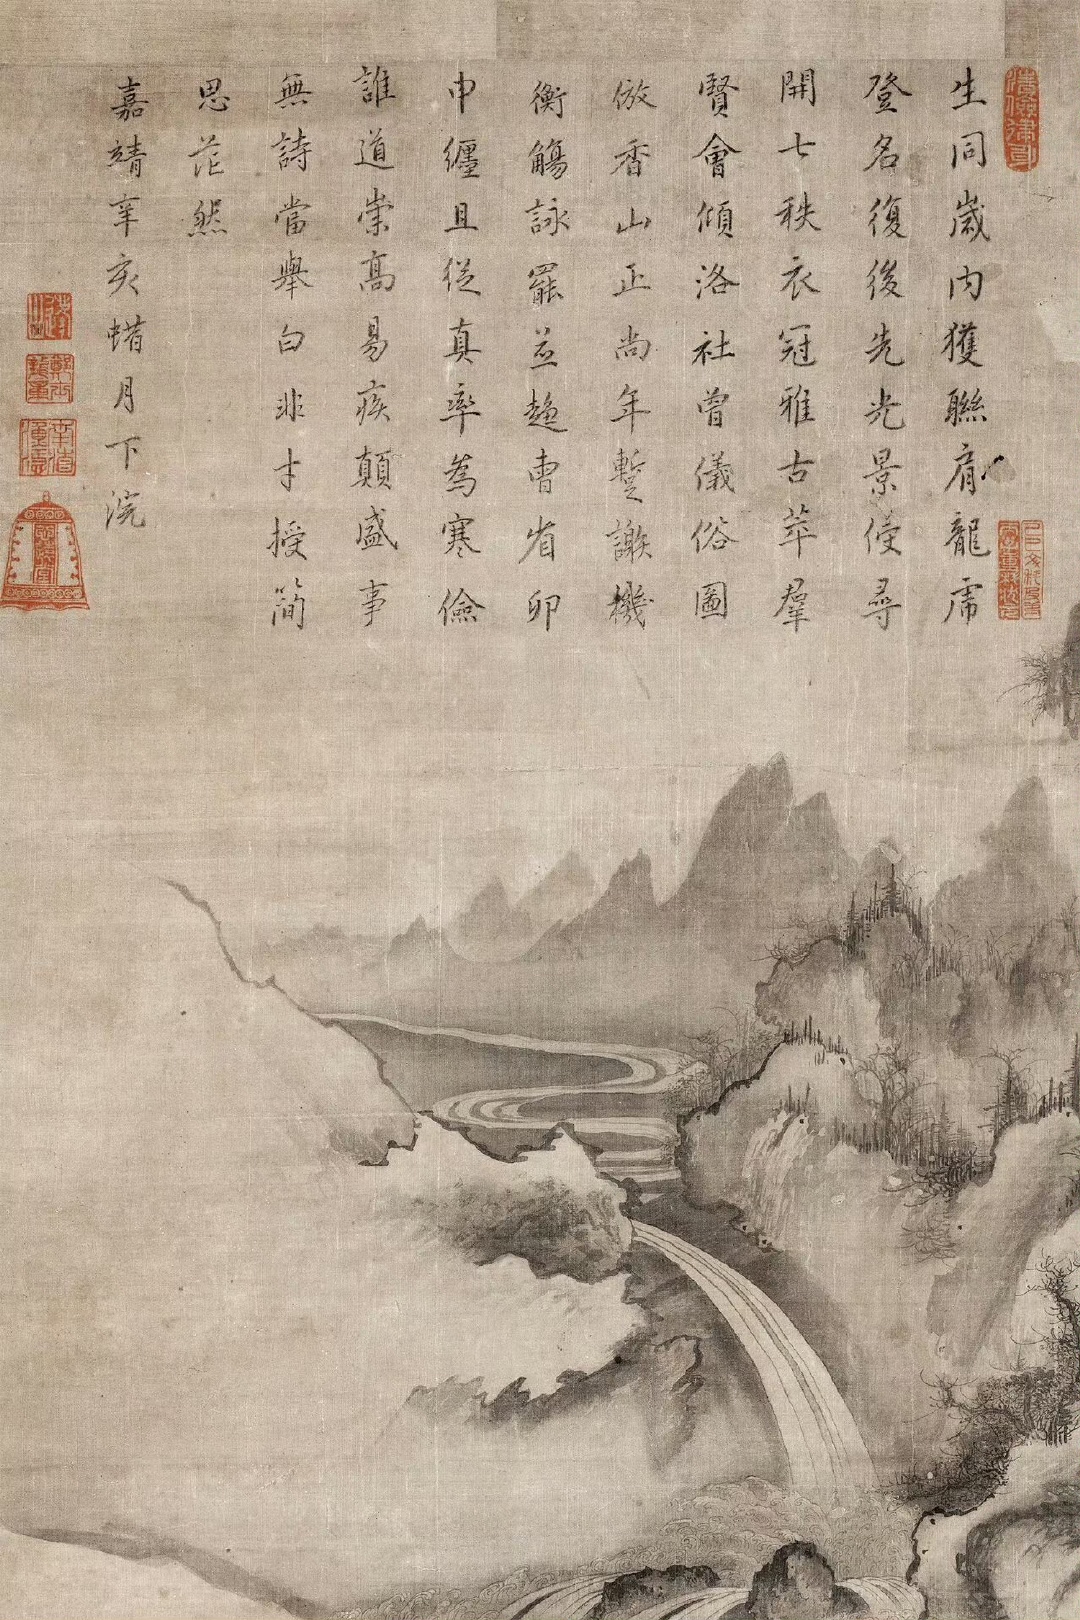 生同歲内獲聯肩龍席
登名復後先光景侵尋
開七秩衣冠雅古萃羣
賢會傾洛社曾儀俗圖
倣香山正尚年暫謝機
衡觴詠罷並趨曹省卯
申纏且從真率為寒儉
誰道崇高易疾顛盛事
無詩當舉白非才授簡
思茫然
嘉靖辛亥蜡月下浣